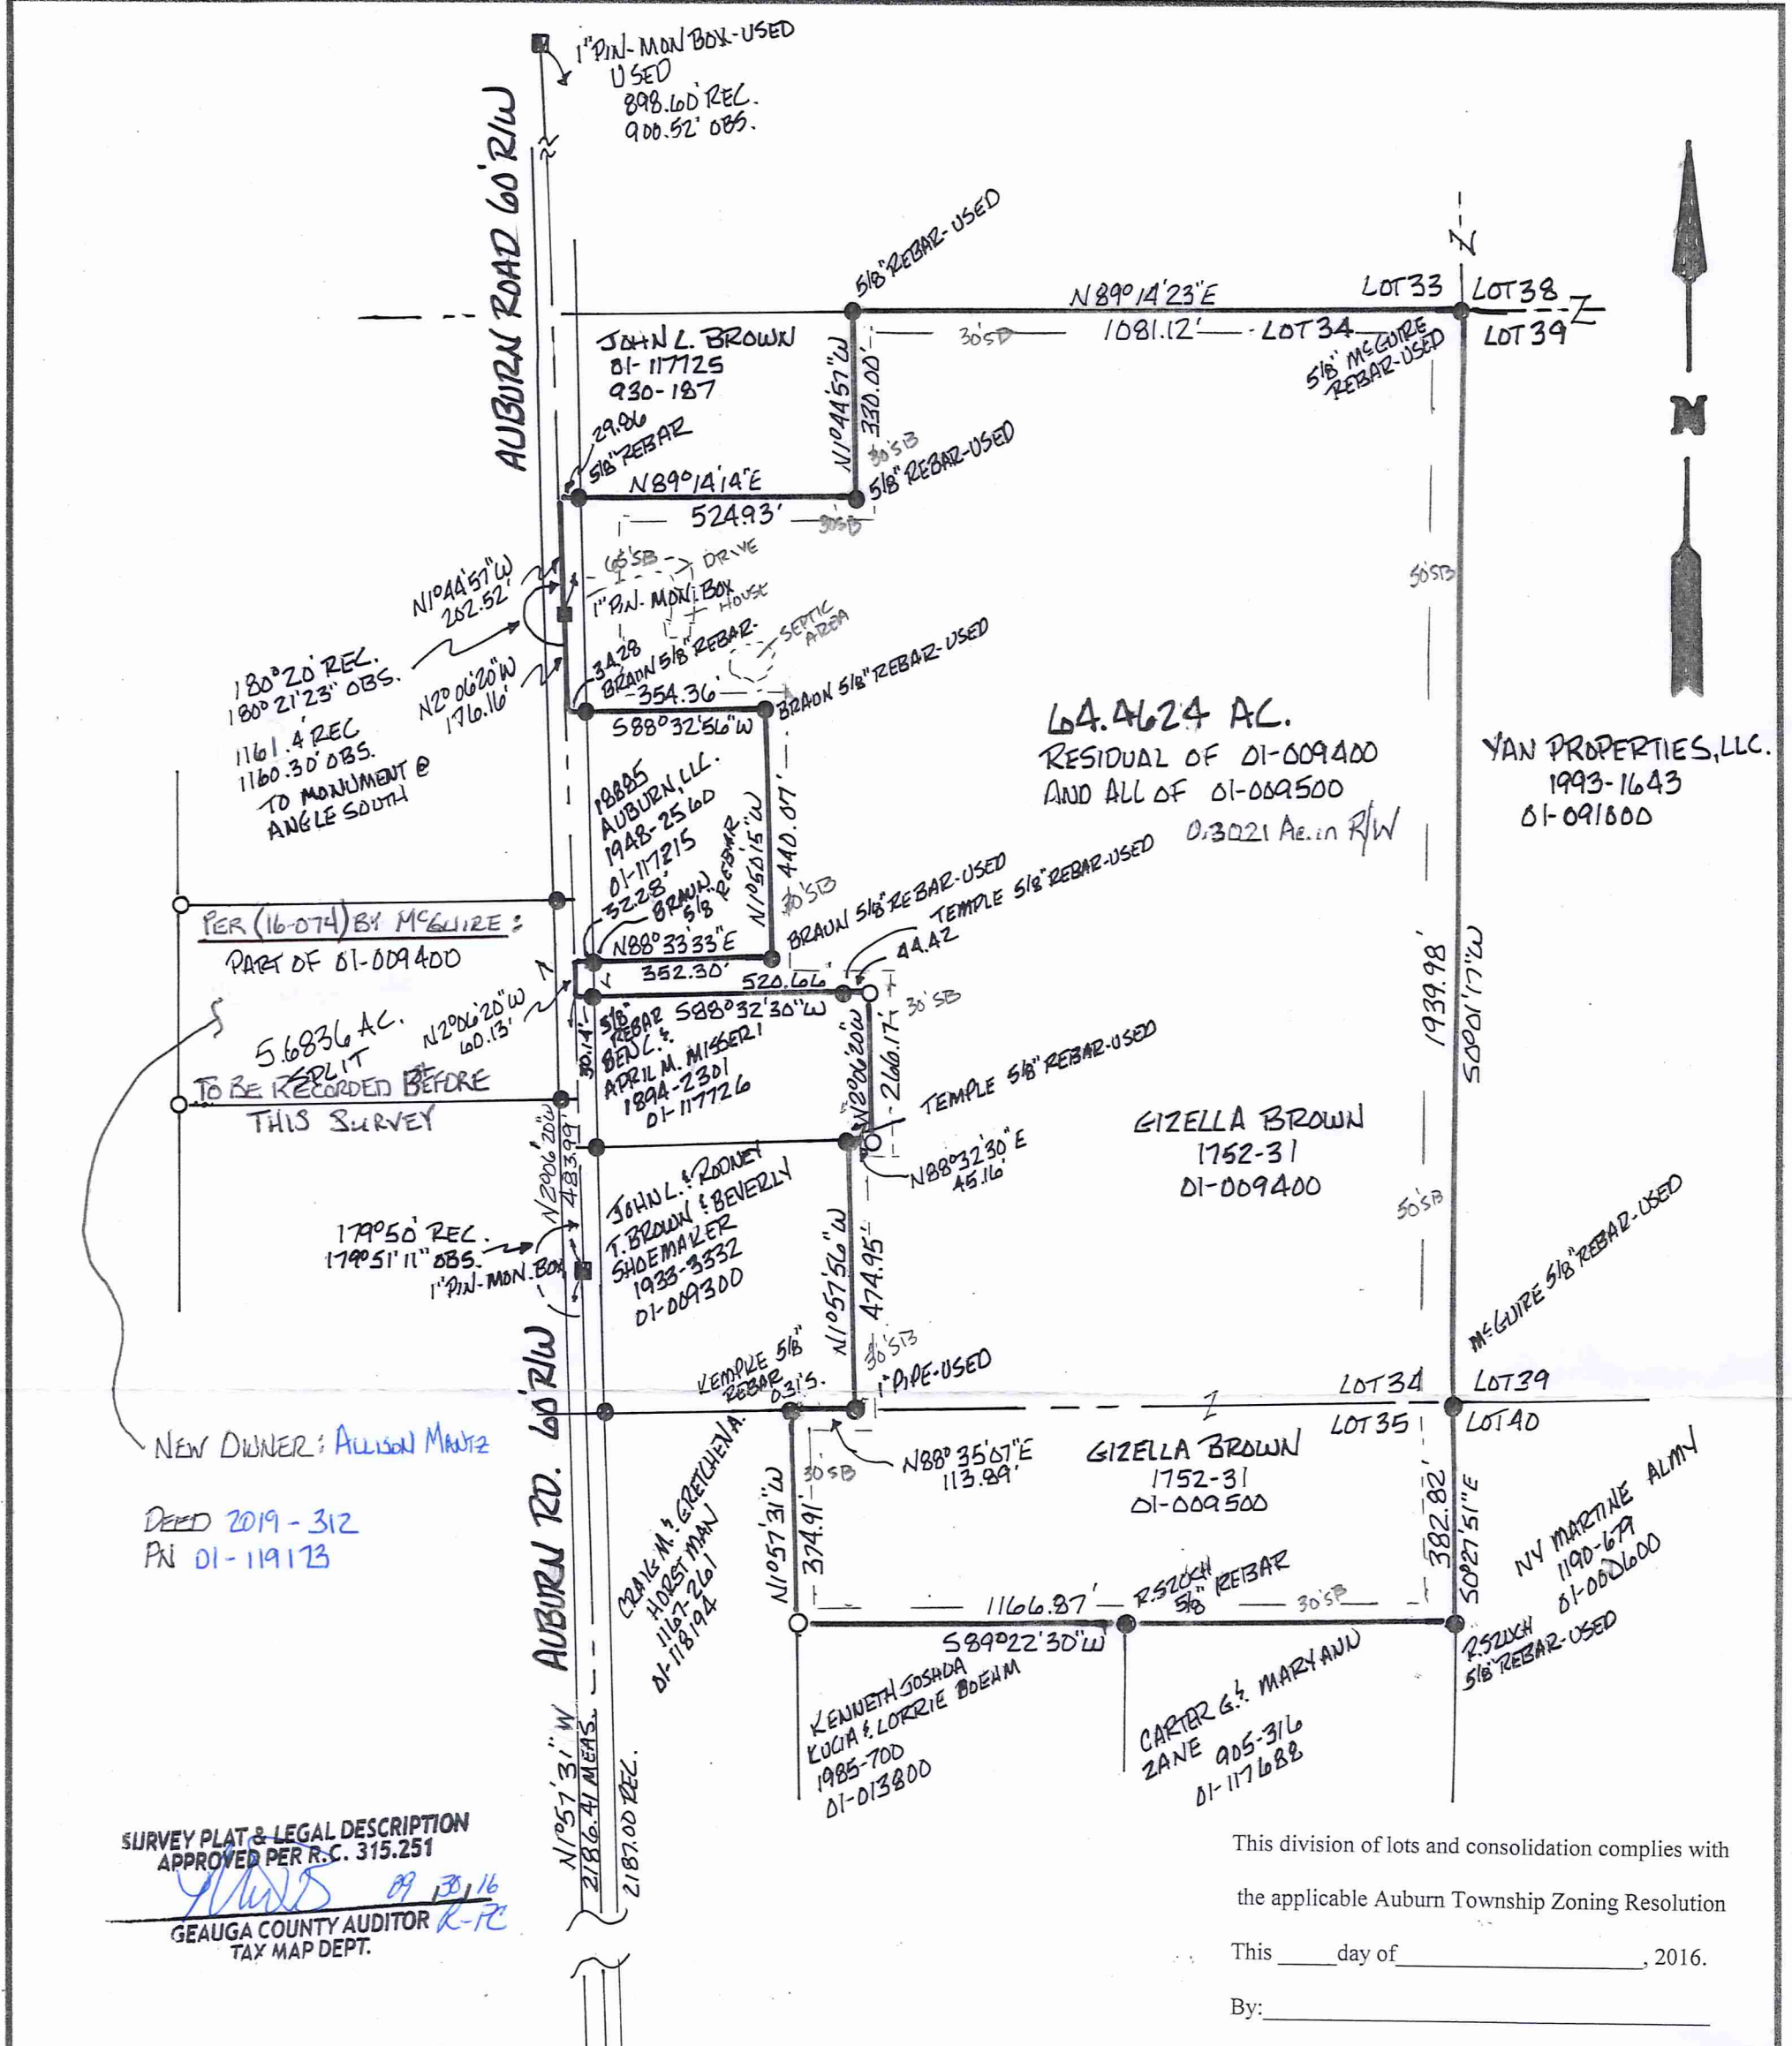 1" PIN-MON BOX-USED
USED
898.60' REC.
900.52' OBS.
AUBURN ROAD 60' R/W
5/8" REBAR-USED
N89°14'23"E
1081.12'
30'SB
LOT 33
LOT 38
LOT 34
LOT 39
5/8" McGUIRE
REBAR-USED
N
JOHN L. BROWN
01-117725
930-187
N1°44'57"W
330.00'
30'SB
5/8" REBAR-USED
29.86
5/8" REBAR
N89°14'14"E
524.93'
30'SB
65'SB
DRIVE
1" PIN-MON. BOX
HOUSE
SEPTIC
AREA
N1°44'57"W
202.52'
180°20' REC.
180°21'23" OBS.
1161.4 REC
1160.30' OBS.
TO MONUMENT @
ANGLE SOUTH
N2°06'20"W
176.16'
34.28
BRAUN 5/8" REBAR-
354.36'
S88°32'56"W
BRAUN 5/8" REBAR-USED
50'SB
64.4624 AC.
RESIDUAL OF 01-009400
AND ALL OF 01-009500
0.3021 Ac. in R/W
YAN PROPERTIES, LLC.
1993-1643
01-091800
18885
AUBURN, LLC.
1948-2560
01-117215
32.28'
BRAUN
5/8"
REBAR
N1°50'15"W
440.07'
30'SB
BRAUN 5/8" REBAR-USED
TEMPLE 5/8" REBAR-USED
44.42
N88°33'33"E
352.30'
520.66
S88°32'30"W
PER (16-074) BY McGUIRE:
PART OF 01-009400
5.6836 AC.
SPLIT
TO BE RECORDED BEFORE
THIS SURVEY
N2°06'20"W
60.13'
30.14'
5/8"
REBAR
BEN C. &
APRIL M. MISSERI
1894-2301
01-117726
N2°06'20"W
266.17'
30'SB
TEMPLE 5/8" REBAR-USED
N88°32'30"E
45.16'
1939.98'
S0°01'17"W
GIZELLA BROWN
1752-31
01-009400
50'SB
N2°06'20"W
483.99'
JOHN L. & RODNEY
T. BROWN & BEVERLY
SHOEMAKER
1933-3332
01-009300
179°50' REC.
179°51'11" OBS.
1" PIN-MON. BOX
N1°57'56"W
474.95'
30'SB
1" PIPE-USED
McGUIRE 5/8" REBAR-USED
AUBURN RD. 60' R/W
KEMPKE 5/8"
REBAR
0.31'S.
LOT 34
LOT 39
LOT 35
LOT 40
N88°35'07"E
113.89'
GIZELLA BROWN
1752-31
01-009500
NEW OWNER: ALLISON MANTZ
DEED 2019-312
PN 01-119173
CRAIG M. & GRETCHEN A.
HORSTMAN
1167-261
01-118194
N1°57'31"W
374.91'
30'SB
382.82'
S0°27'51"E
NY MARTINE ALMY
1190-679
1166.87'
S89°22'30"W
R.SZUCH
5/8" REBAR
30'SB
R.SZUCH
5/8" REBAR-USED
KENNETH JOSHUA
KUCIA & LORRIE BOEHM
1985-700
01-013800
CARTER G. & MARY ANN
ZANE 905-316
01-117688
N1°57'31"W
2186.41 MEAS.
2187.00 REC.
SURVEY PLAT & LEGAL DESCRIPTION
APPROVED PER R.C. 315.251
09/30/16
GEAUGA COUNTY AUDITOR R-PC
TAX MAP DEPT.
This division of lots and consolidation complies with
the applicable Auburn Township Zoning Resolution
This _____day of______________________, 2016.
By:________________________________________